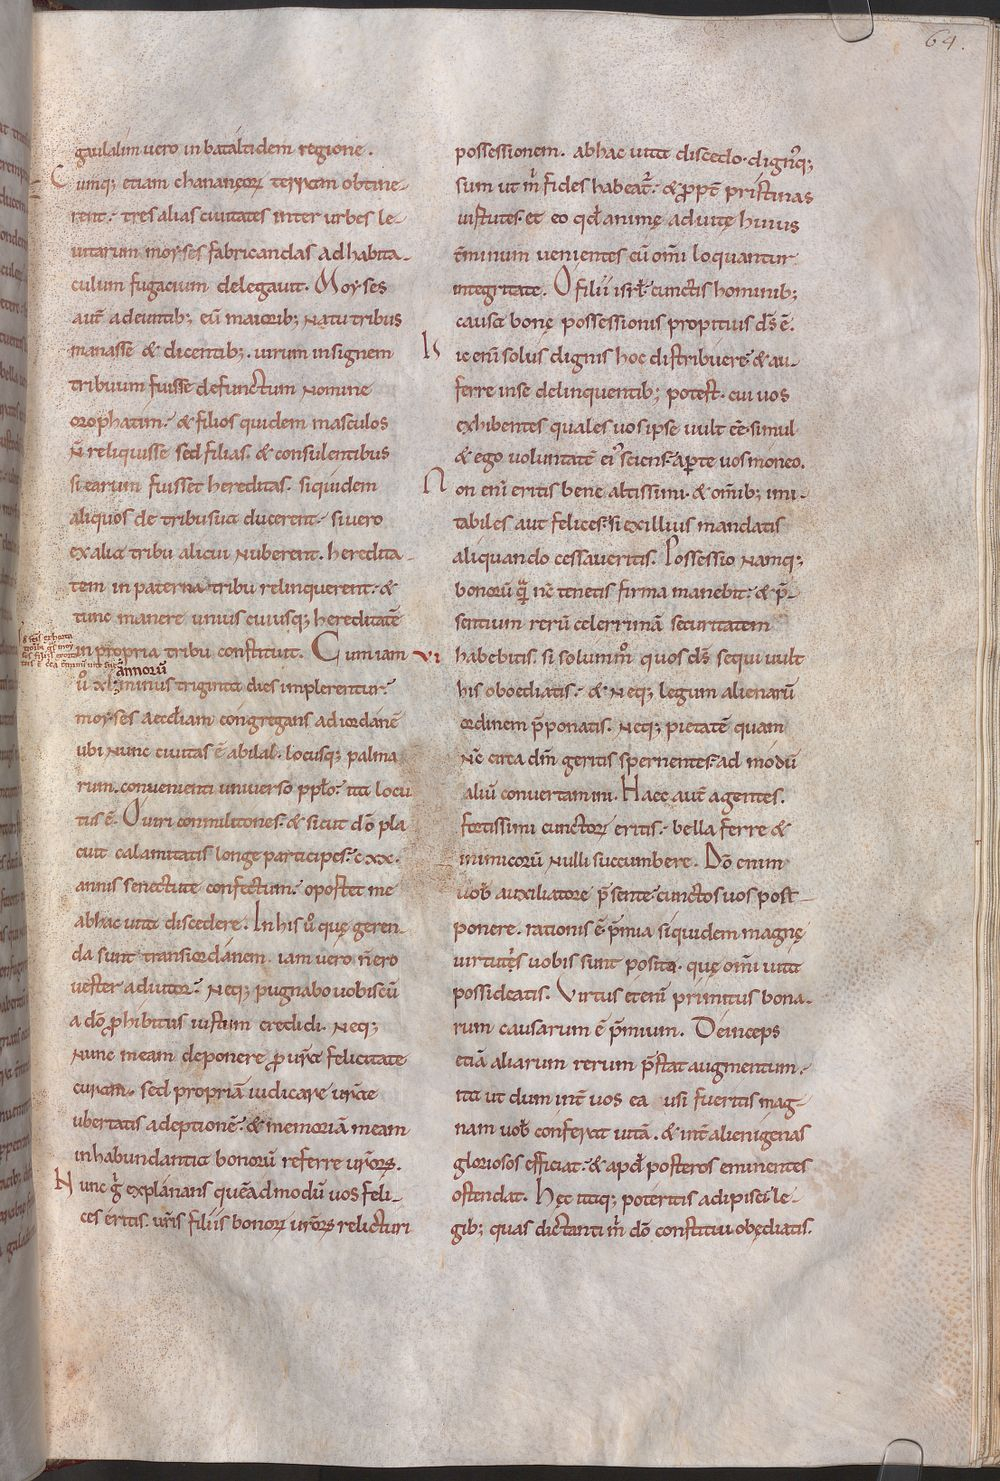 64.
gaulalim uero in batalti dem regione.
Cumq; etiam chananęoꝝ terram obtine-
rent. tres alias ciuitates inter urbes le-
uitarum moyses fabricandas ad habita-
culum fugacium delegauit. Moyses
aut̄ adeuntib; eū maiorib; natu tribus
manasse & dicentib;. uirum insignem
tribuum fuisse defunctum nomine
orophatim. & filios quidem masculos
n̄ reliquisse sed filias. & consulentibus
si earum fuisset hereditas. siquidem
aliquos de tribu sua ducerent. si uero
ex alia tribu alicui nuberent. heredita-
tem in paterna tribu relinquerent. &
tunc manere unius cuiusq; hereditatē
in propria tribu constituit. Cum iam
annorū
u̅o xl. minus triginta dies implerentur.
moyses aecclam congregans ad iordanē
ubi nunc ciuitas ē abilal. locusq; palma
rum. conuenienti uniuerso pplo. ita locu
tus ē. O uiri conmilitones. & sicut dō pla
cuit calamitatis longe participes. cxx.
annis senectute confectum. oportet me
ab hac uita discedere. In his u̅o quę geren-
da sunt trans iordanem. iam uero n̄ ero
uester adiutor. Neq; pugnabo uobiscū
a dō ꝓhibitus iustum credidi. Neq;
nunc meam deponere ꝓ ur̄a felicitate
curam. sed propriā iudicare ur̄ae
ubertatis adeptionē. & memoriā meam
in habundantia bonorū referre ur̄orꝫ.
Nunc g̊ explanans quēadmodū uos feli-
ces eritis. ur̄is filiis bonoꝝ ur̄orꝫ relicturi
possessionem. ab hac uita discedo. dignꝰq;
sum ut m̄ fides habeat̄. & ꝓpt̄ pristinas
uirtutes. et eo qd̄ animę ad uitę huius
t̄minum uenientes cū omī loquantur
integritate. O filii isrl̄ cunctis hominib;
causa bonę possessionis propitius ds̄ ē.
Is enī solus dignis hoc distribuere & au-
ferre in se delinquentib; potest. cui uos
exhibentes quales uos ipse uult eē. simul
& ego uoluntatē eiꝰ sciens. aperte uos moneo.
Non enī eritis bene altissimi. & omīb; imi-
tabiles aut felices. si ex illius mandatis
aliquando cessaueritis. Possessio namq;
bonorū quā nc̄ tenetis firma manebit. & p̄-
sentium rerū celerrimā securitatem
VI habebitis. si solummō quos ds̄ sequi uult
his oboediatis. & neq; legum alienarū
ordinem p̄ponatis. Neq; pietatē quam
nc̄ circa dm̄ geritis spernentes. ad modū
aliū conuertamini. Haec aut̄ agentes.
fortissimi cunctoꝝ eritis. bella ferre &
inimicorū nulli succumbere. Dō enim
uob̄ auxiliatore p̄sente. cunctos uos post-
ponere. rationis ē p̄mia siquidem magnę
uirtutis uobis sunt posita. quę omī uita
possideatis. Virtus etenī primitus bona-
rum causarum ē p̄mium. Deinceps
etiā aliarum rerum p̄stat augmentum.
ita ut dum int̄ uos ea usi fueritis mag-
nam uob̄ conferat uitā. & int̄ alienigenas
gloriosos efficiat. & apd̄ posteros eminentes
ostendat. Hęc itaq; poteritis adipisci le-
gib; quas dictanti m̄ dō constitui obędiatis.